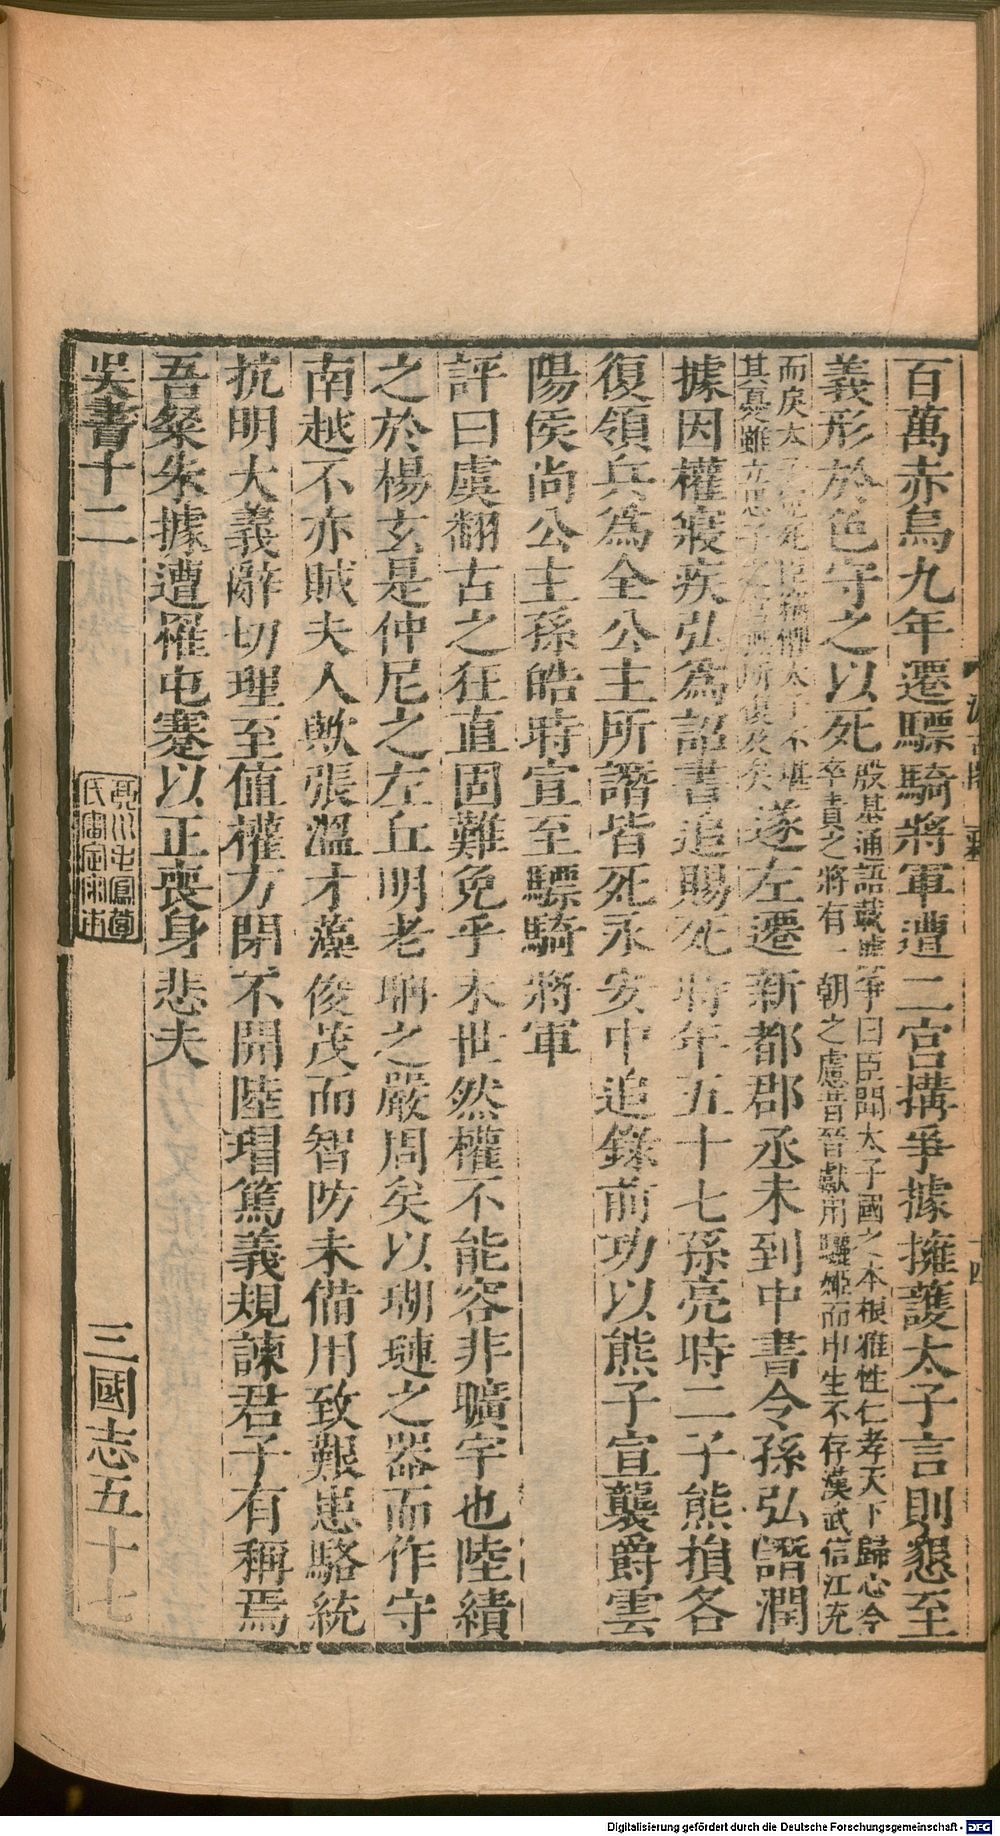 百萬赤烏九年遷驃騎將軍遭二宮搆爭據擁護太子言則懇至
義形於色守之以死殷基通語載據爭曰臣聞太子國之本根雅性仁孝天下歸心今
卒責之將有一朝之慮昔晉獻用驪姬而申生不存漢武信江充
而戾太子冤死臣竊懼太子不堪
其憂雖立思子之宮無所復及矣遂左遷新都郡丞未到中書令孫弘譖潤
據因權寢疾弘為詔書追賜死時年五十七孫亮時二子熊損各
復領兵為全公主所譖皆死永安中追錄前功以熊子宣襲爵雲
陽侯尚公主孫皓時宣至驃騎將軍
評曰虞翻古之狂直固難免乎末世然權不能容非曠宇也陸績
之於楊玄是仲尼之左丘明老聃之嚴周矣以瑚璉之器而作守
南越不亦賊夫人歟張溫才藻俊茂而智防未備用致艱患駱統
抗明大義辭切理至值權方閉不開陸瑁篤義規諫君子有稱焉
吾粲朱據遭罹屯蹇以正喪身悲夫
吳書十二 三國志五十七
Digitalisierung gefördert durch die Deutsche Forschungsgemeinschaft - DFG